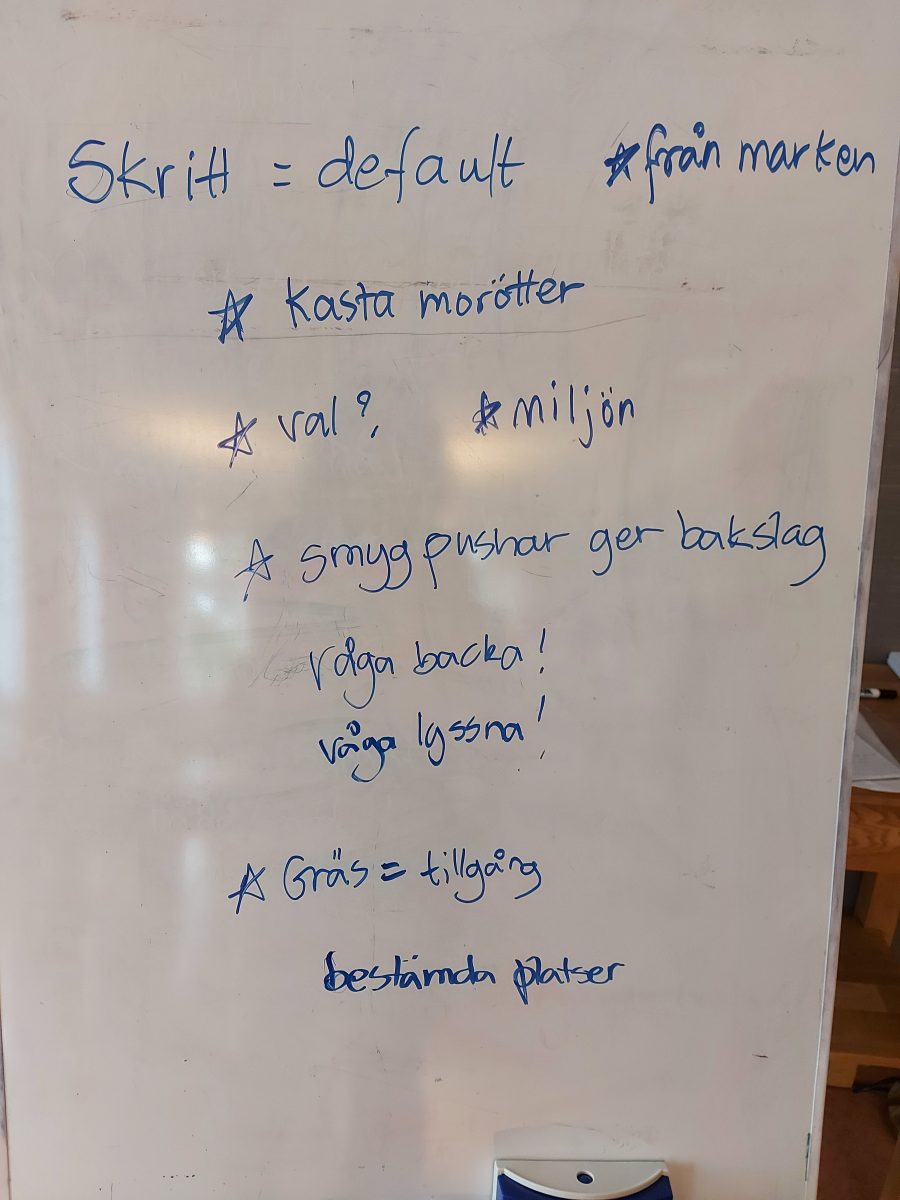 Skritt = default ☆ från marken
☆ Kasta morötter
☆ val? ☆ miljön
☆ smygpushar ger bakslag
våga backa!
våga lyssna!
☆ Gräs = tillgång
bestämda platser